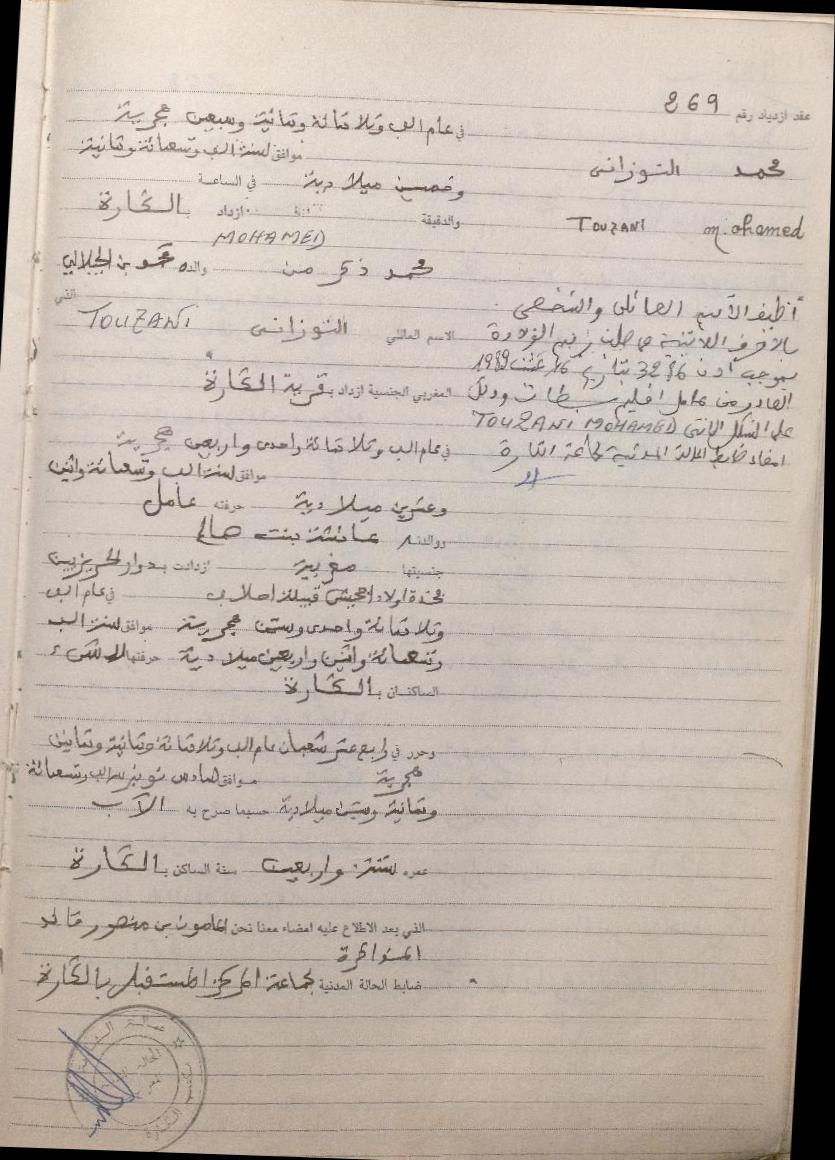 عقد ازدياد رقم 269
محمد التوزاني
Mohamed TOUZANI
أضيف الاسم العائلي والشخصي
بالأحرف اللاتينية
بموجب 3276 بتاريخ 16 غشت 1989
الصادر من عامل اقليم سطات وذلك
على الشكل الاتي TOUZANI MOHAMED
امضاء ضابط الحالة المدنية لجماعة الكارة
في عام الف وثلاثمائة وثمانية وسبعين هجرية
موافق لسنة الف وتسعمائة وثمانية
وخمسين ميلادية في الساعة
والدقيقة ازداد بالكارة
MOHAMED
محمد ذكر من والده محمد بن الجيلالي
الاسم العائلي التوزاني TOUZANI
المغربي الجنسية ازداد بقرية الكارة
في عام الف وثلاثمائة واحدى واربعين هجرية
موافق لسنة الف وتسعمائة واثنين
وعشرين ميلادية حرفته عامل
ووالدته عائشة بنت صالح
جنسيتها مغربية ازدادت بدوار الحريزيين
فخدة اولاد قبيلة في عام الف
وثلاثمائة واحدى وستين هجرية موافق لسنة الف
وتسعمائة واثنين واربعين ميلادية حرفتها لا شيء
الساكنان بالكارة
وحرر في رابع عشر شعبان عام الف وثلاثمائة وثمانية وثمانين
هجرية موافق السادس نونبر سنة الف وتسعمائة
وثمانية وستين ميلادية حسبما صرح به الأب
عمره ستة واربعين سنة الساكن بالكارة
الذي بعد الاطلاع عليه امضاه معنا نحن المامون بن منصور قائد
المذاكرة
ضابط الحالة المدنية لجماعة المركز المستقبل بالكارة